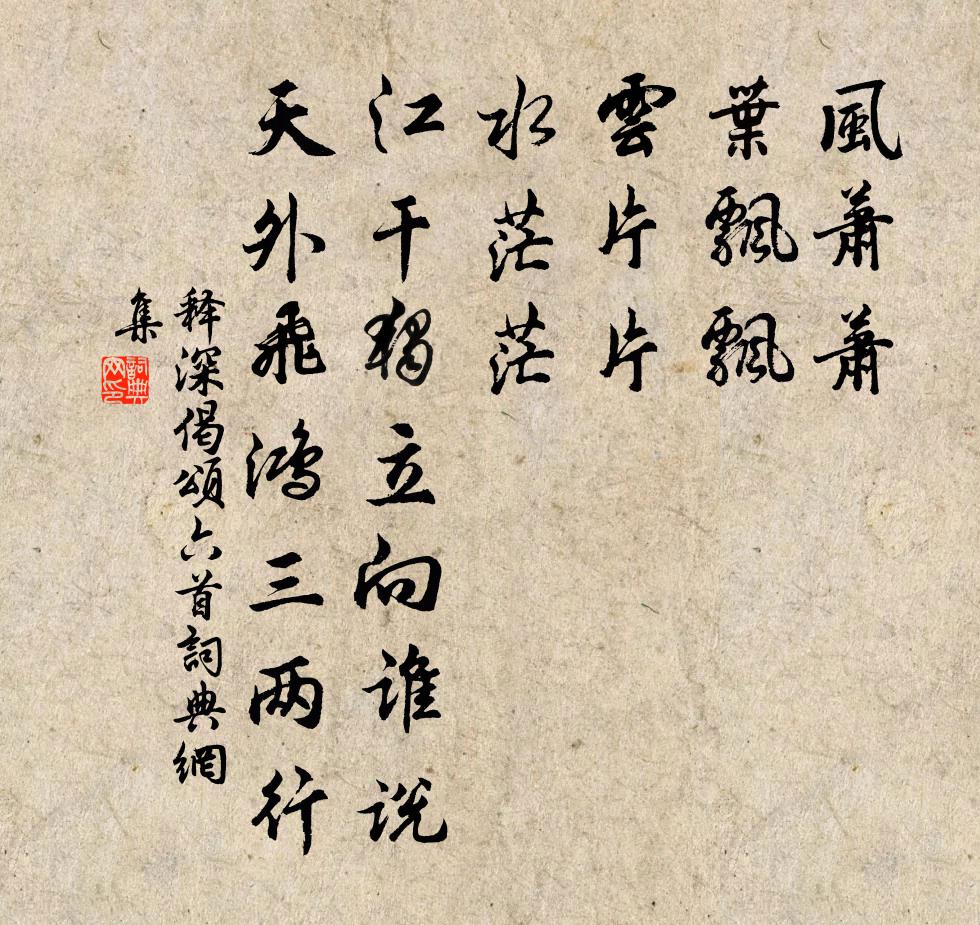 風蕭蕭
葉飄飄
雲片片
水茫茫
江干獨立向谁説
天外飛鴻三两行
释深偈頌六首詞典網
集
詞典网印